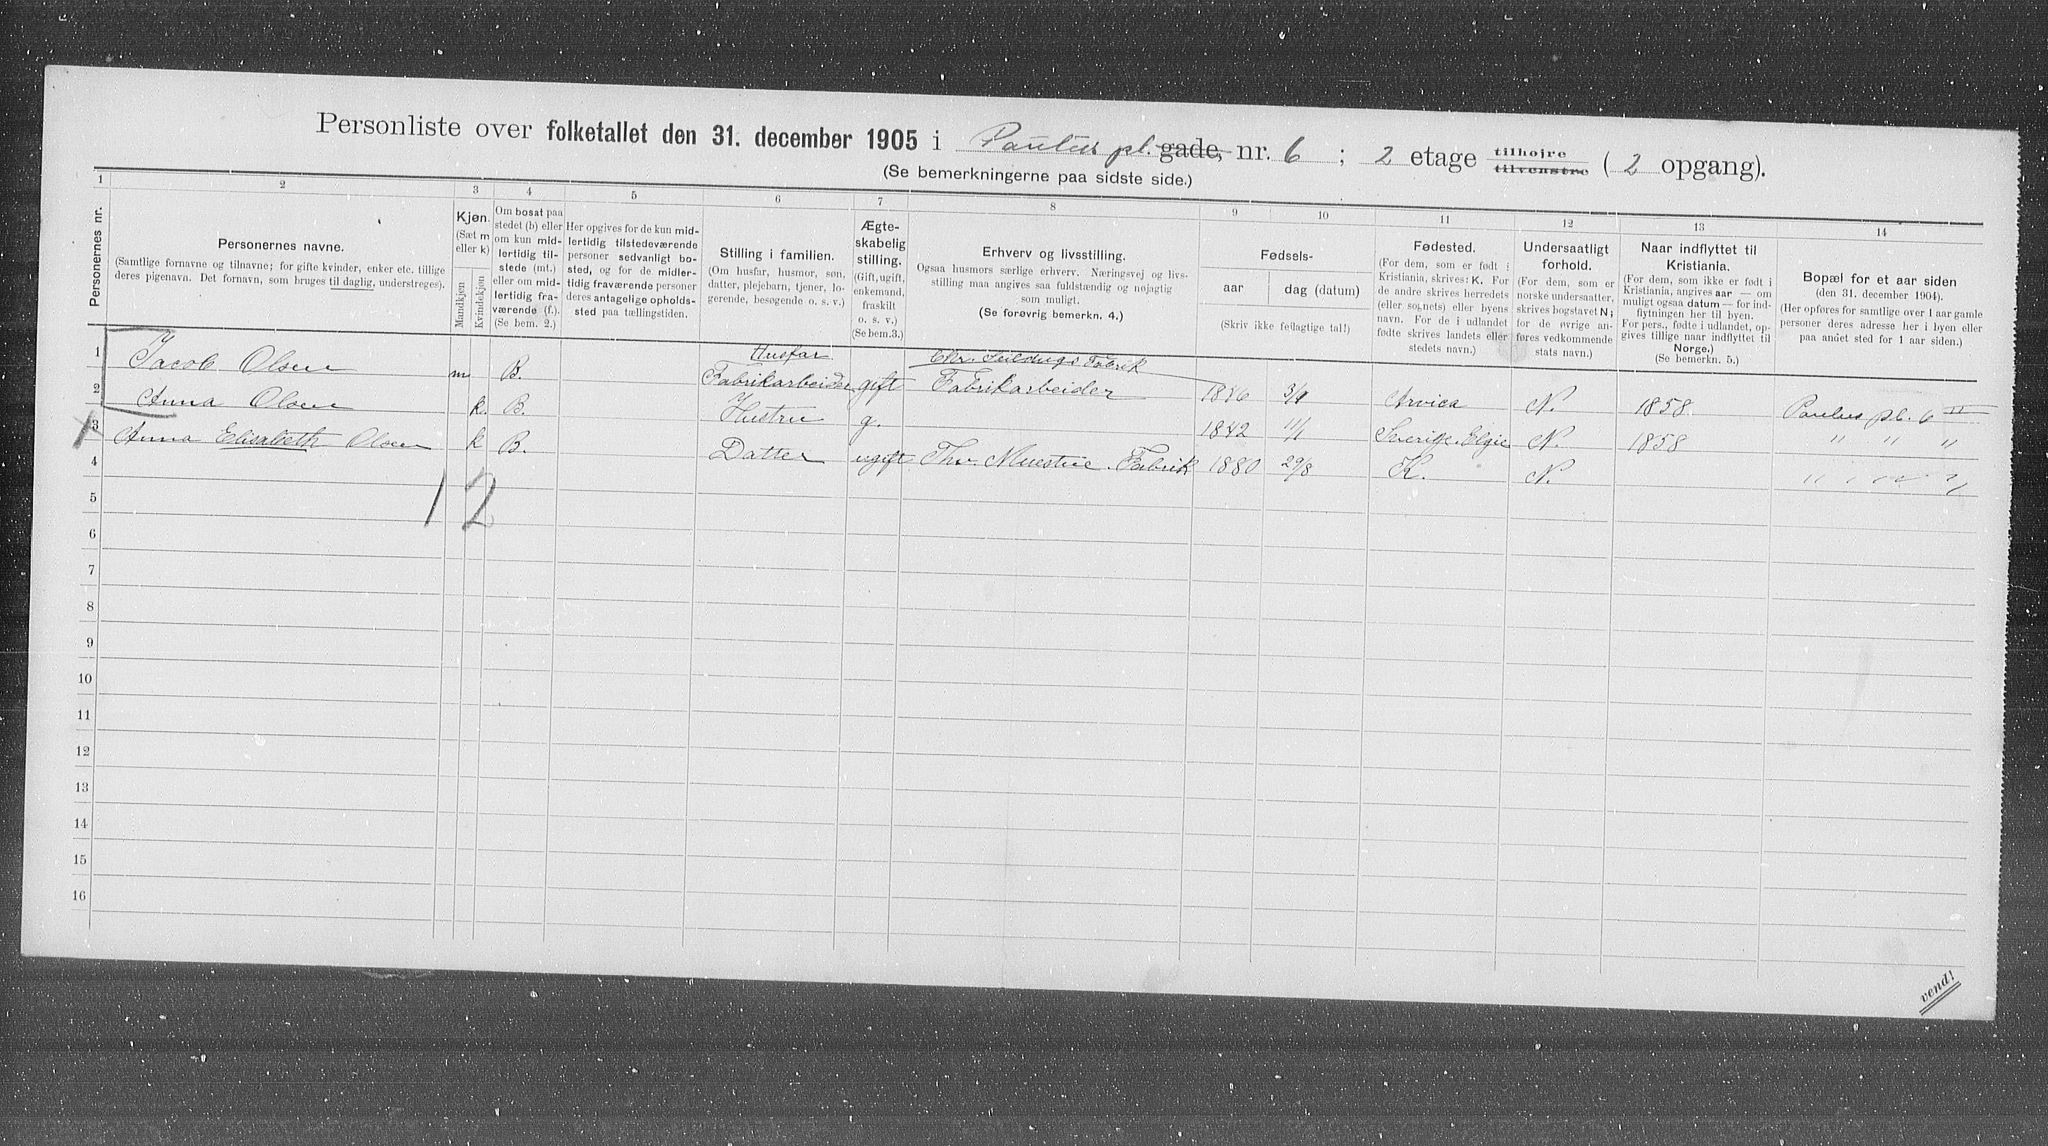 Personliste over folketallet den 31. december 1905 i Paulus pl. gade, nr. 6 ; 2 etage tilhøjre tilvenstre ( 2 opgang).
(Se bemerkningerne paa sidste side.)
1 2 3 4 5 6 7 8 9 10 11 12 13 14
Personernes nr.
Personernes navne.
(Samtlige fornavne og tilnavne; for gifte kvinder, enker etc. tillige
deres pigenavn. Det fornavn, som bruges til daglig, understreges).
Kjøn.
(Sæt m
eller k)
Mandkjøn
Kvindekjøn
Om bosat paa
stedet (b) eller
om kun mid-
lertidig til-
stede (mt.)
eller om mid-
lertidig fra-
værende (f.).
(Se bem. 2.)
Her opgives for de kun mid-
lertidig tilstedeværende
personer sedvanligt bo-
sted, og for de midler-
tidig fraværende personer
deres antagelige opholds-
sted paa tællingstiden.
Stilling i familien.
(Om husfar, husmor, søn,
datter, plejebarn, tjener, lo-
gerende, besøgende o. s. v.)
Ægte-
skabelig
stilling.
(Gift, ugift,
enkemand,
fraskilt
o. s. v.)
(Se bem.3.)
Erhverv og livsstilling.
Ogsaa husmors særlige erhverv. Næringsvej og livs-
stilling maa angives saa fuldstændig og nøjagtig
som muligt.
(Se forøvrig bemerkn. 4.)
Fødsels-
aar
dag (datum)
(Skriv ikke feilagtige tal!)
Fødested.
(For dem, som er født i
Kristiania, skrives: K. For
de andre skrives herredets
(eller sognets) eller byens
navn. For de i udlandet
fødte skrives landets eller
stedets navn.)
Undersaatligt
forhold.
(For dem, som er
norske undersaatter,
skrives bogstavet N;
for de øvrige an-
føres vedkommende
stats navn.)
Naar indflyttet til
Kristiania.
(For dem, som ikke er født i
Kristiania, angives aar — om
muligt ogsaa datum — for ind-
flytningen her til byen.
For pers., fødte i udlandet, op-
gives tillige naar indflyttet til
Norge.)
(Se bemerkn. 5.)
Bopæl for et aar siden
(den 31. december 1904).
(Her opføres for samtlige over 1 aar gamle
personer deres adresse her i byen eller
paa andet sted for 1 aar siden.)
Husfar Chr. Fabrik
1 Jacob Olsen m B. Fabrikarbeider gift Fabrikarbeider 1846 Arvica N. 1858 Paulus pl. 6 II
2 Anna Olsen k. B. Hustru g. 1842 11/1 N. 1858 " " "
3 Anna Elisabeth Olsen k B. Datter ugift Fabrik 1880 29/8 K. N. " " " "
4
12
5
6
7
8
9
10
11
12
13
14
15
16
vend!